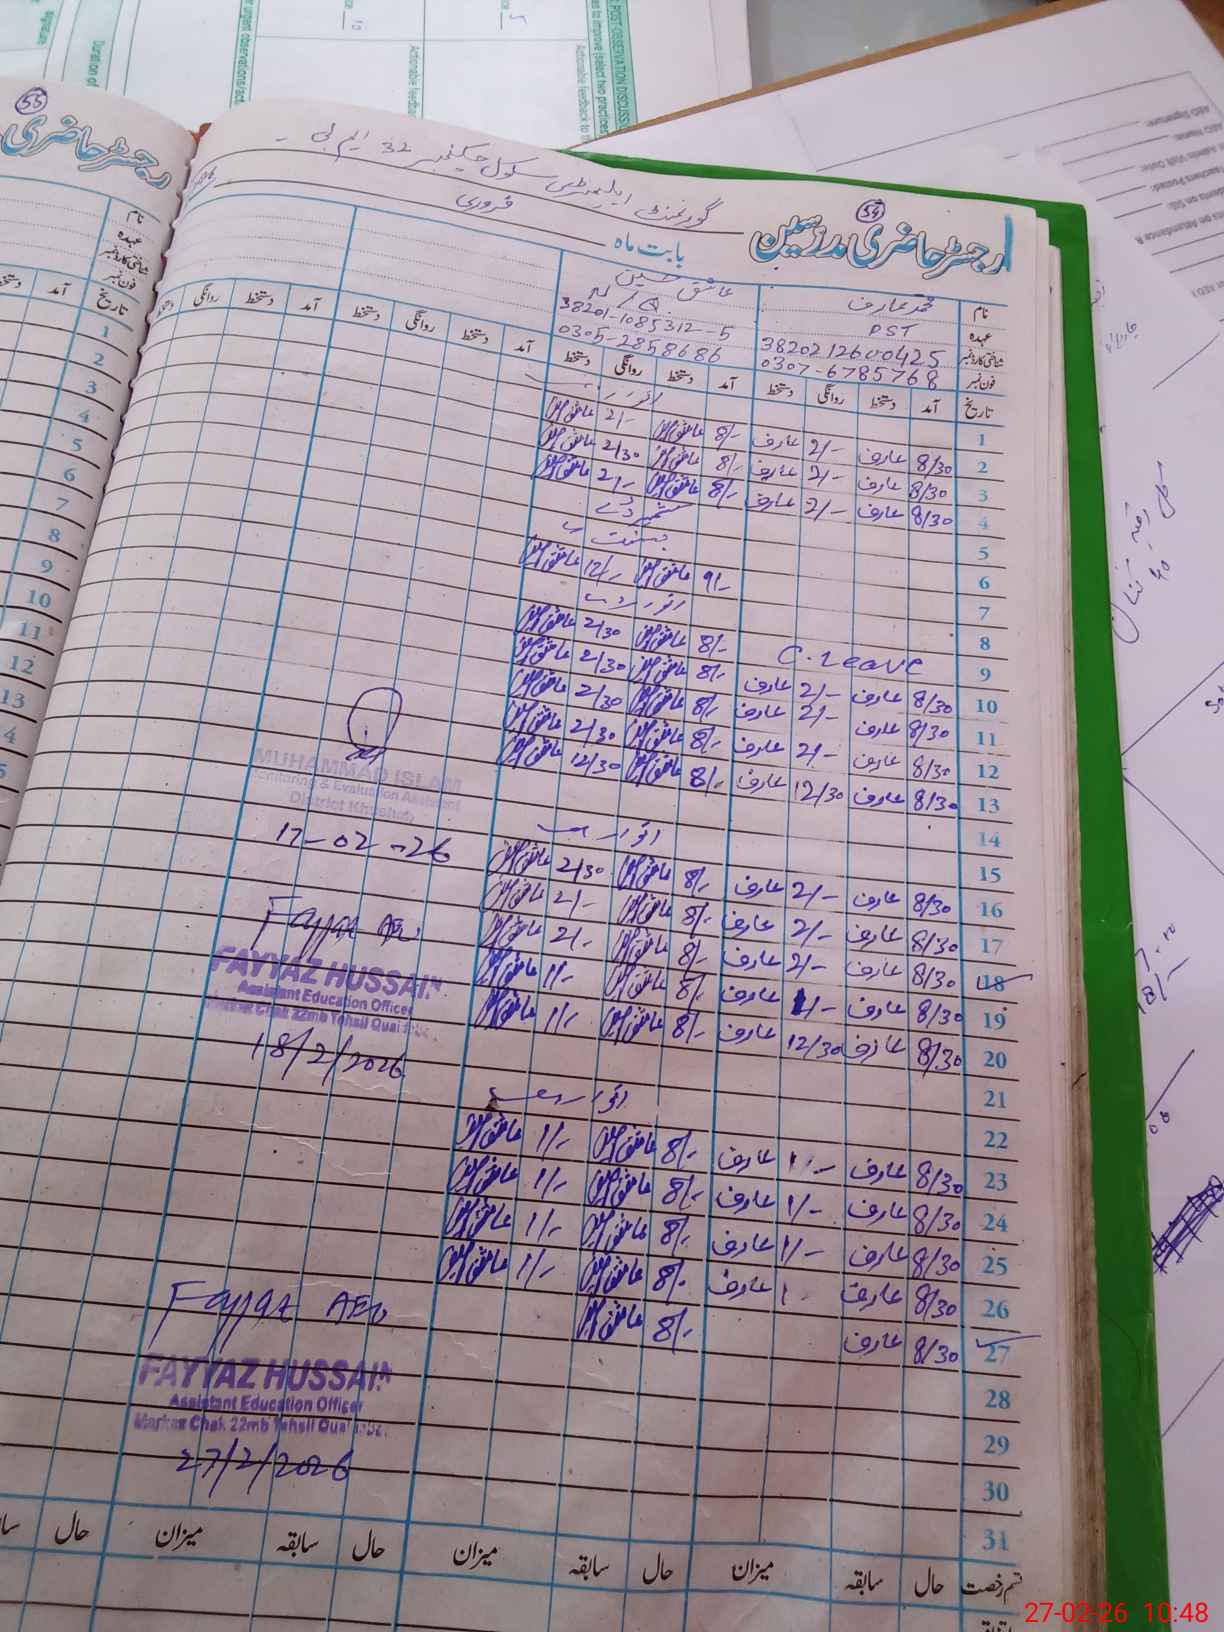 54
رجسٹر حاضری مدرسین
گورنمنٹ ایلیمنٹری سکول چک نمبر 32 ایم بی
بابت ماہ فروری
نام محمد عارف عاشق حسین
عہدہ PST
شناختی کارڈ نمبر 3820212600425 38201-1085312-5
فون نمبر 0307-6785768 0305-2858686
تاریخ آمد دستخط روانگی دستخط آمد دستخط روانگی دستخط آمد دستخط روانگی دستخط آمد دستخط
1 اتوار
2 8/30 عارف 2/- عارف 8/- عاشق حسین 2/- عاشق حسین
3 8/30 عارف 2/- عارف 8/- عاشق حسین 2/30 عاشق حسین
4 8/30 عارف 2/- عارف 8/- عاشق حسین 2/- عاشق حسین
5 کشمیر ڈے
6 بسنت
7 9/- عاشق حسین 12/- عاشق حسین
8 اتوار
9 C. Leave 8/- عاشق حسین 2/30 عاشق حسین
10 8/30 عارف 2/- عارف 8/- عاشق حسین 2/30 عاشق حسین
11 8/30 عارف 2/- عارف 8/- عاشق حسین 2/30 عاشق حسین
12 8/30 عارف 2/- عارف 8/- عاشق حسین 2/30 عاشق حسین
13 8/30 عارف 12/30 عارف 8/- عاشق حسین 12/30 عاشق حسین
14
15 اتوار
16 8/30 عارف 2/- عارف 8/- عاشق حسین 2/30 عاشق حسین
17 8/30 عارف 2/- عارف 8/- عاشق حسین 2/- عاشق حسین
18 8/30 عارف 2/- عارف 8/- عاشق حسین 2/- عاشق حسین
19 8/30 عارف 1/- عارف 8/- عاشق حسین 1/- عاشق حسین
20 8/30 عارف 12/30 عارف 8/- عاشق حسین 1/- عاشق حسین
21
22 اتوار
23 8/30 عارف 1/- عارف 8/- عاشق حسین 1/- عاشق حسین
24 8/30 عارف 1/- عارف 8/- عاشق حسین 1/- عاشق حسین
25 8/30 عارف 1/- عارف 8/- عاشق حسین 1/- عاشق حسین
26 8/30 عارف 1 عارف 8/- عاشق حسین 1/- عاشق حسین
27 8/30 عارف 8/- عاشق حسین
28
29
30
31
قسم رخصت حال سابقہ میزان حال سابقہ میزان حال سابقہ میزان حال
MUHAMMAD ISLAM
Monitoring & Evaluation Assistant
District Khushab
17-02-26
Fayyaz AEO
FAYYAZ HUSSAIN
Assistant Education Officer
Markaz Chak 22mb Tehsil Quai
18/2/2026
Fayyaz AEO
FAYYAZ HUSSAIN
Assistant Education Officer
Markaz Chak 22mb Tehsil Quai
27/2/2026
55
رجسٹر حاضری
نام
عہدہ
شناختی کارڈ نمبر
فون نمبر
تاریخ آمد
1
2
3
4
5
6
7
8
9
10
11
12
13
POST OBSERVATION DISCUSS
to improve (select two practices
Actionable feedback to
Actionable feedba
urgent observations/act
Duration of
Signature
27-02-26 10:48